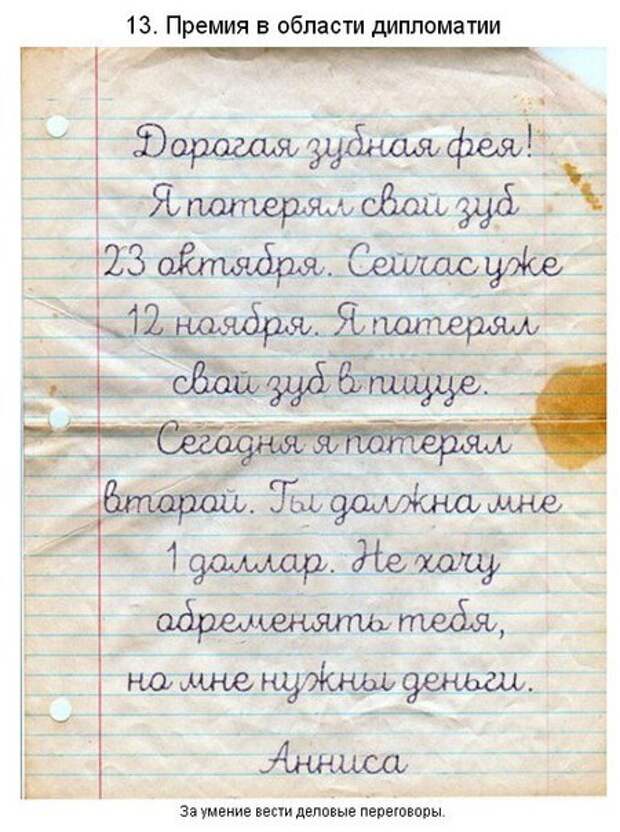 13. Премия в области дипломатии
Дорогая зубная фея!
Я потерял свой зуб
23 октября. Сейчас уже
12 ноября. Я потерял
свой зуб в пицце.
Сегодня я потерял
второй. Ты должна мне
1 доллар. Не хочу
обременять тебя,
но мне нужны деньги.
Анниса
За умение вести деловые переговоры.